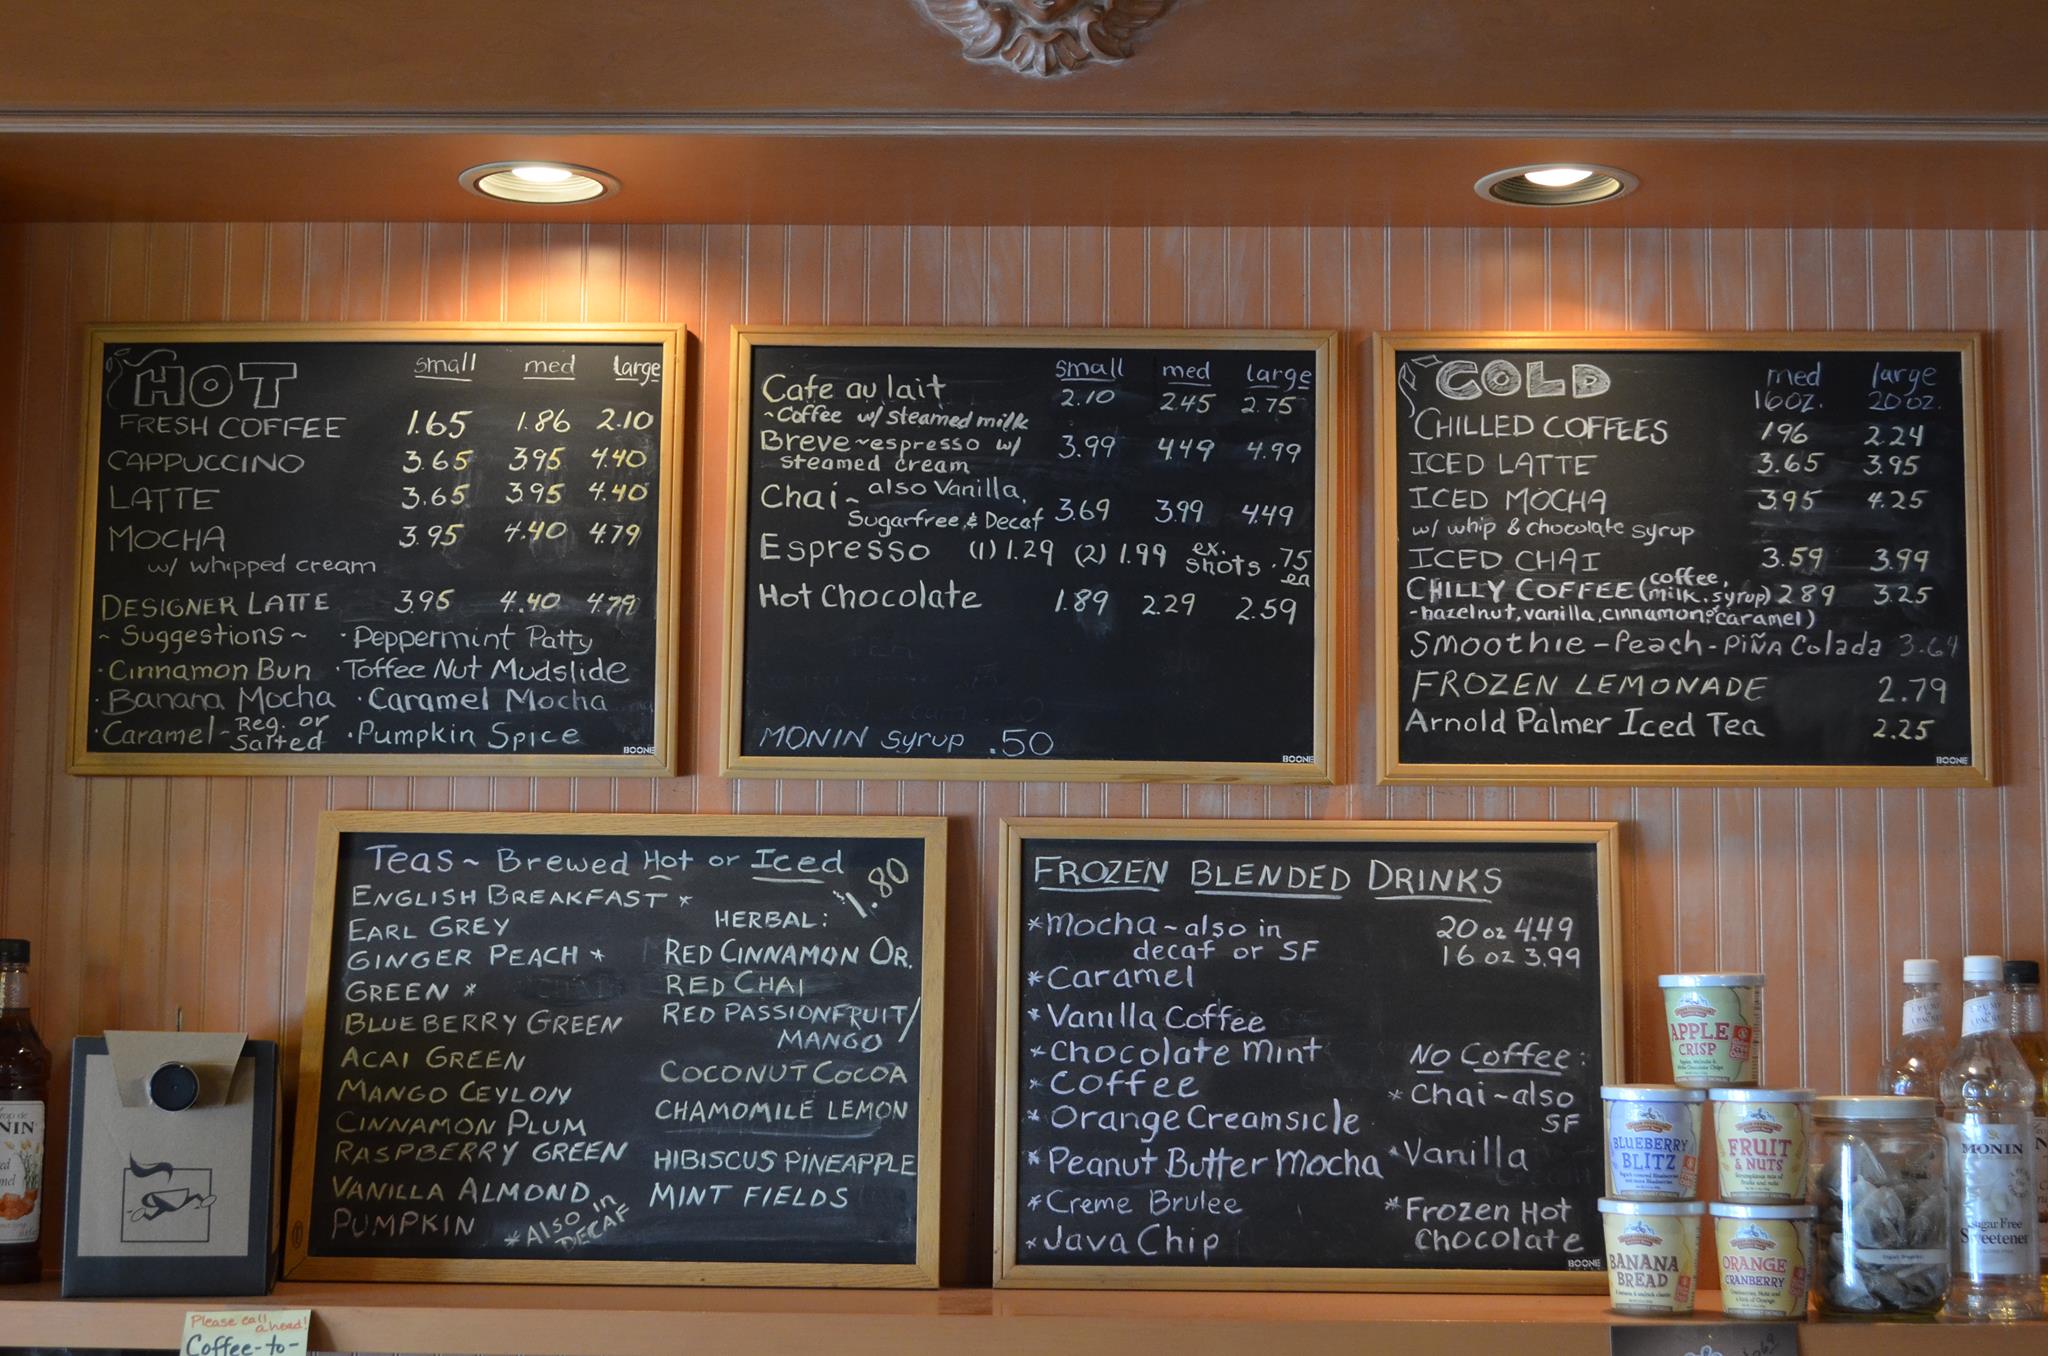 HOT small med large
FRESH COFFEE 1.65 1.86 2.10
CAPPUCCINO 3.65 3.95 4.40
LATTE 3.65 3.95 4.40
MOCHA 3.95 4.40 4.79
w/ whipped cream
DESIGNER LATTE 3.95 4.40 4.79
~ Suggestions ~ · Peppermint Patty
· Cinnamon Bun · Toffee Nut Mudslide
· Banana Mocha · Caramel Mocha
· Caramel - Reg. or Salted · Pumpkin Spice
BOONE
small med large
Cafe au lait 2.10 2.45 2.75
~ Coffee w/ steamed milk
Breve ~ espresso w/ 3.99 4.49 4.99
steamed cream
Chai ~ also Vanilla,
Sugarfree, & Decaf 3.69 3.99 4.49
Espresso (1) 1.29 (2) 1.99 ex. shots .75 ea
Hot Chocolate 1.89 2.29 2.59
MONIN syrup .50
BOONE
COLD med large
16oz. 20oz.
CHILLED COFFEES 196 2.24
ICED LATTE 3.65 3.95
ICED MOCHA 3.95 4.25
w/ whip & chocolate syrup
ICED CHAI 3.59 3.99
CHILLY COFFEE (coffee, milk, syrup) 289 3.25
- hazelnut, vanilla, cinnamon & caramel)
Smoothie - Peach - Piña Colada 3.64
FROZEN LEMONADE 2.79
Arnold Palmer Iced Tea 2.25
BOONE
Teas ~ Brewed Hot or Iced 1.80
ENGLISH BREAKFAST *
EARL GREY
GINGER PEACH *
GREEN *
BLUEBERRY GREEN
ACAI GREEN
MANGO CEYLON
CINNAMON PLUM
RASPBERRY GREEN
VANILLA ALMOND
PUMPKIN
* Also in
DECAF
HERBAL:
RED CINNAMON OR.
RED CHAI
RED PASSIONFRUIT/
MANGO
COCONUT COCOA
CHAMOMILE LEMON
HIBISCUS PINEAPPLE
MINT FIELDS
FROZEN BLENDED DRINKS
* Mocha ~ also in
decaf or SF
* Caramel
* Vanilla Coffee
* Chocolate Mint
* Coffee
* Orange Creamsicle
* Peanut Butter Mocha
* Creme Brulee
* Java Chip
20 oz 4.49
16 oz 3.99
No Coffee:
* Chai ~ also
SF
* Vanilla
* Frozen Hot
Chocolate
BOONE
APPLE
CRISP
BLUEBERRY
BLITZ
FRUIT
& NUTS
BANANA
BREAD
ORANGE
CRANBERRY
MONIN
Sugar Free
Sweetener
Please call
ahead!
Coffee-to-